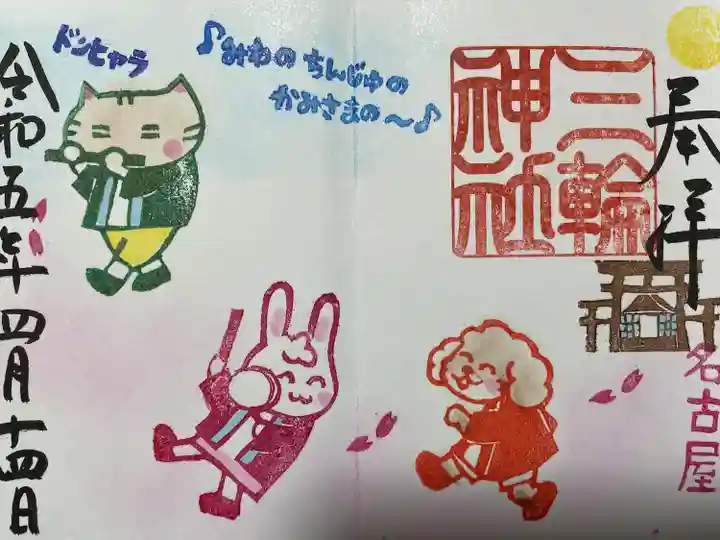 奉拝
三輪
神社
名古屋
♪みわの ちんじゅの
かみさまの〜♪
ドンヒャラ
令和五年四月十四日